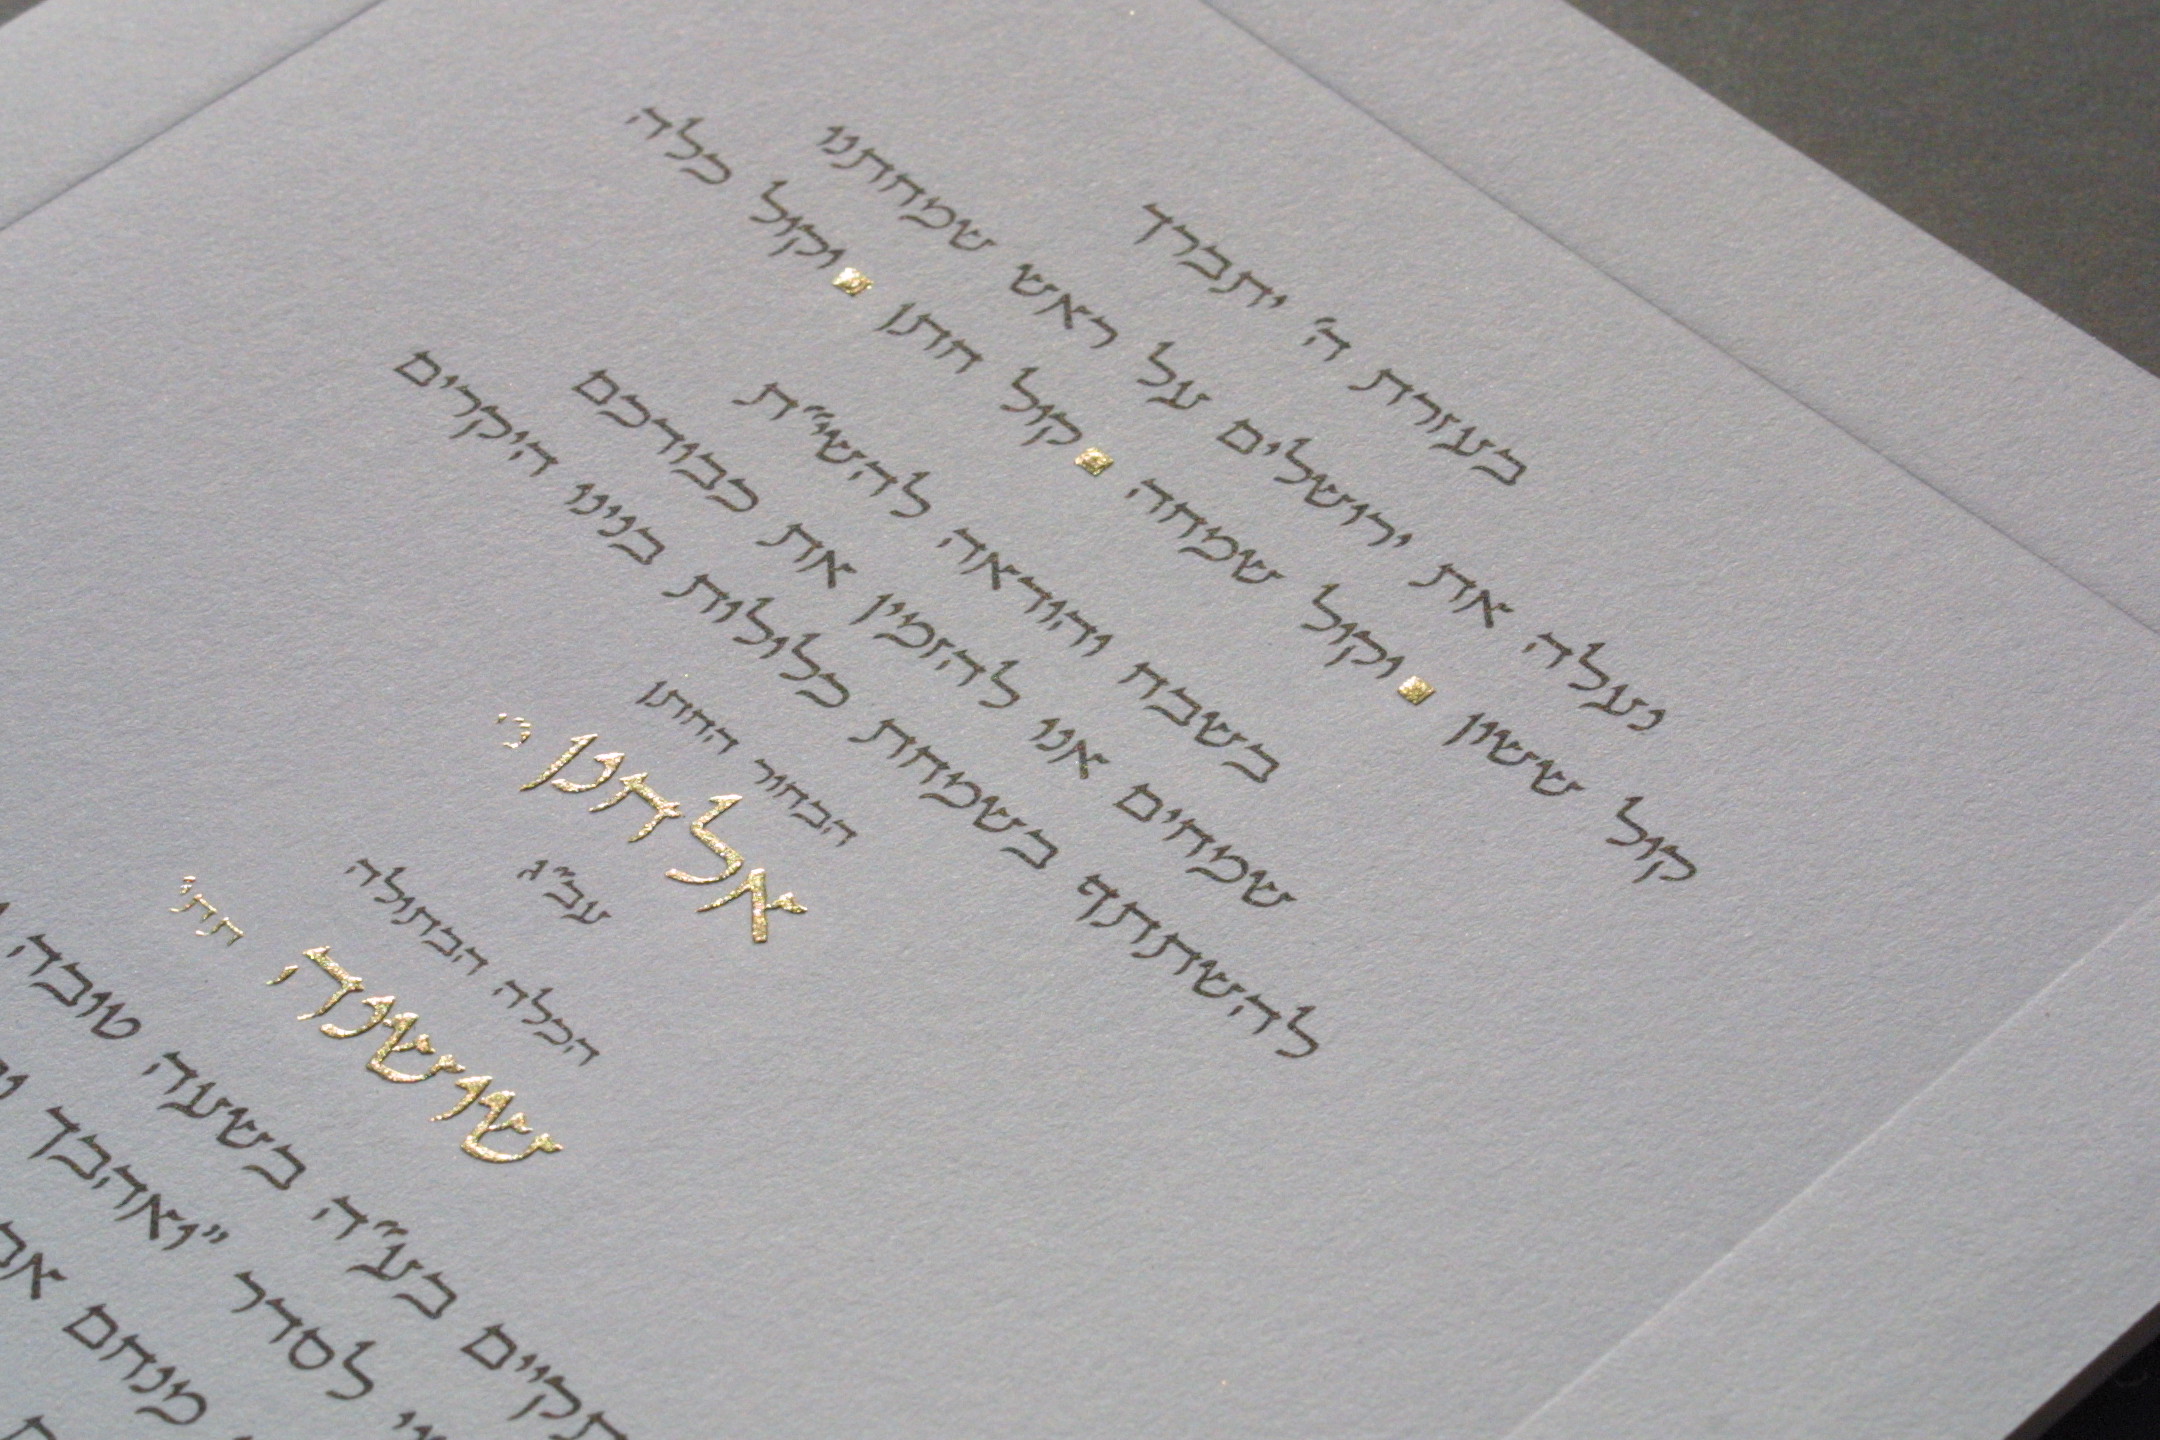 בעזרת ה' יתברך
נעלה את ירושלים על ראש שמחתנו
קול ששון ▪ וקול שמחה ▪ קול חתן ▪ וקול כלה
בשבח והודאה להשי״ת
שמחים אנו להזמין את כבודכם
להשתתף בשמחת כלולות בנינו היקרים
הבחור החתן
אלחנן ני'
עב״ג
הכלה הבתולה
שושנה תחי'
בע״ה בשעה טובה
לסדר "ואהבך
מנחם